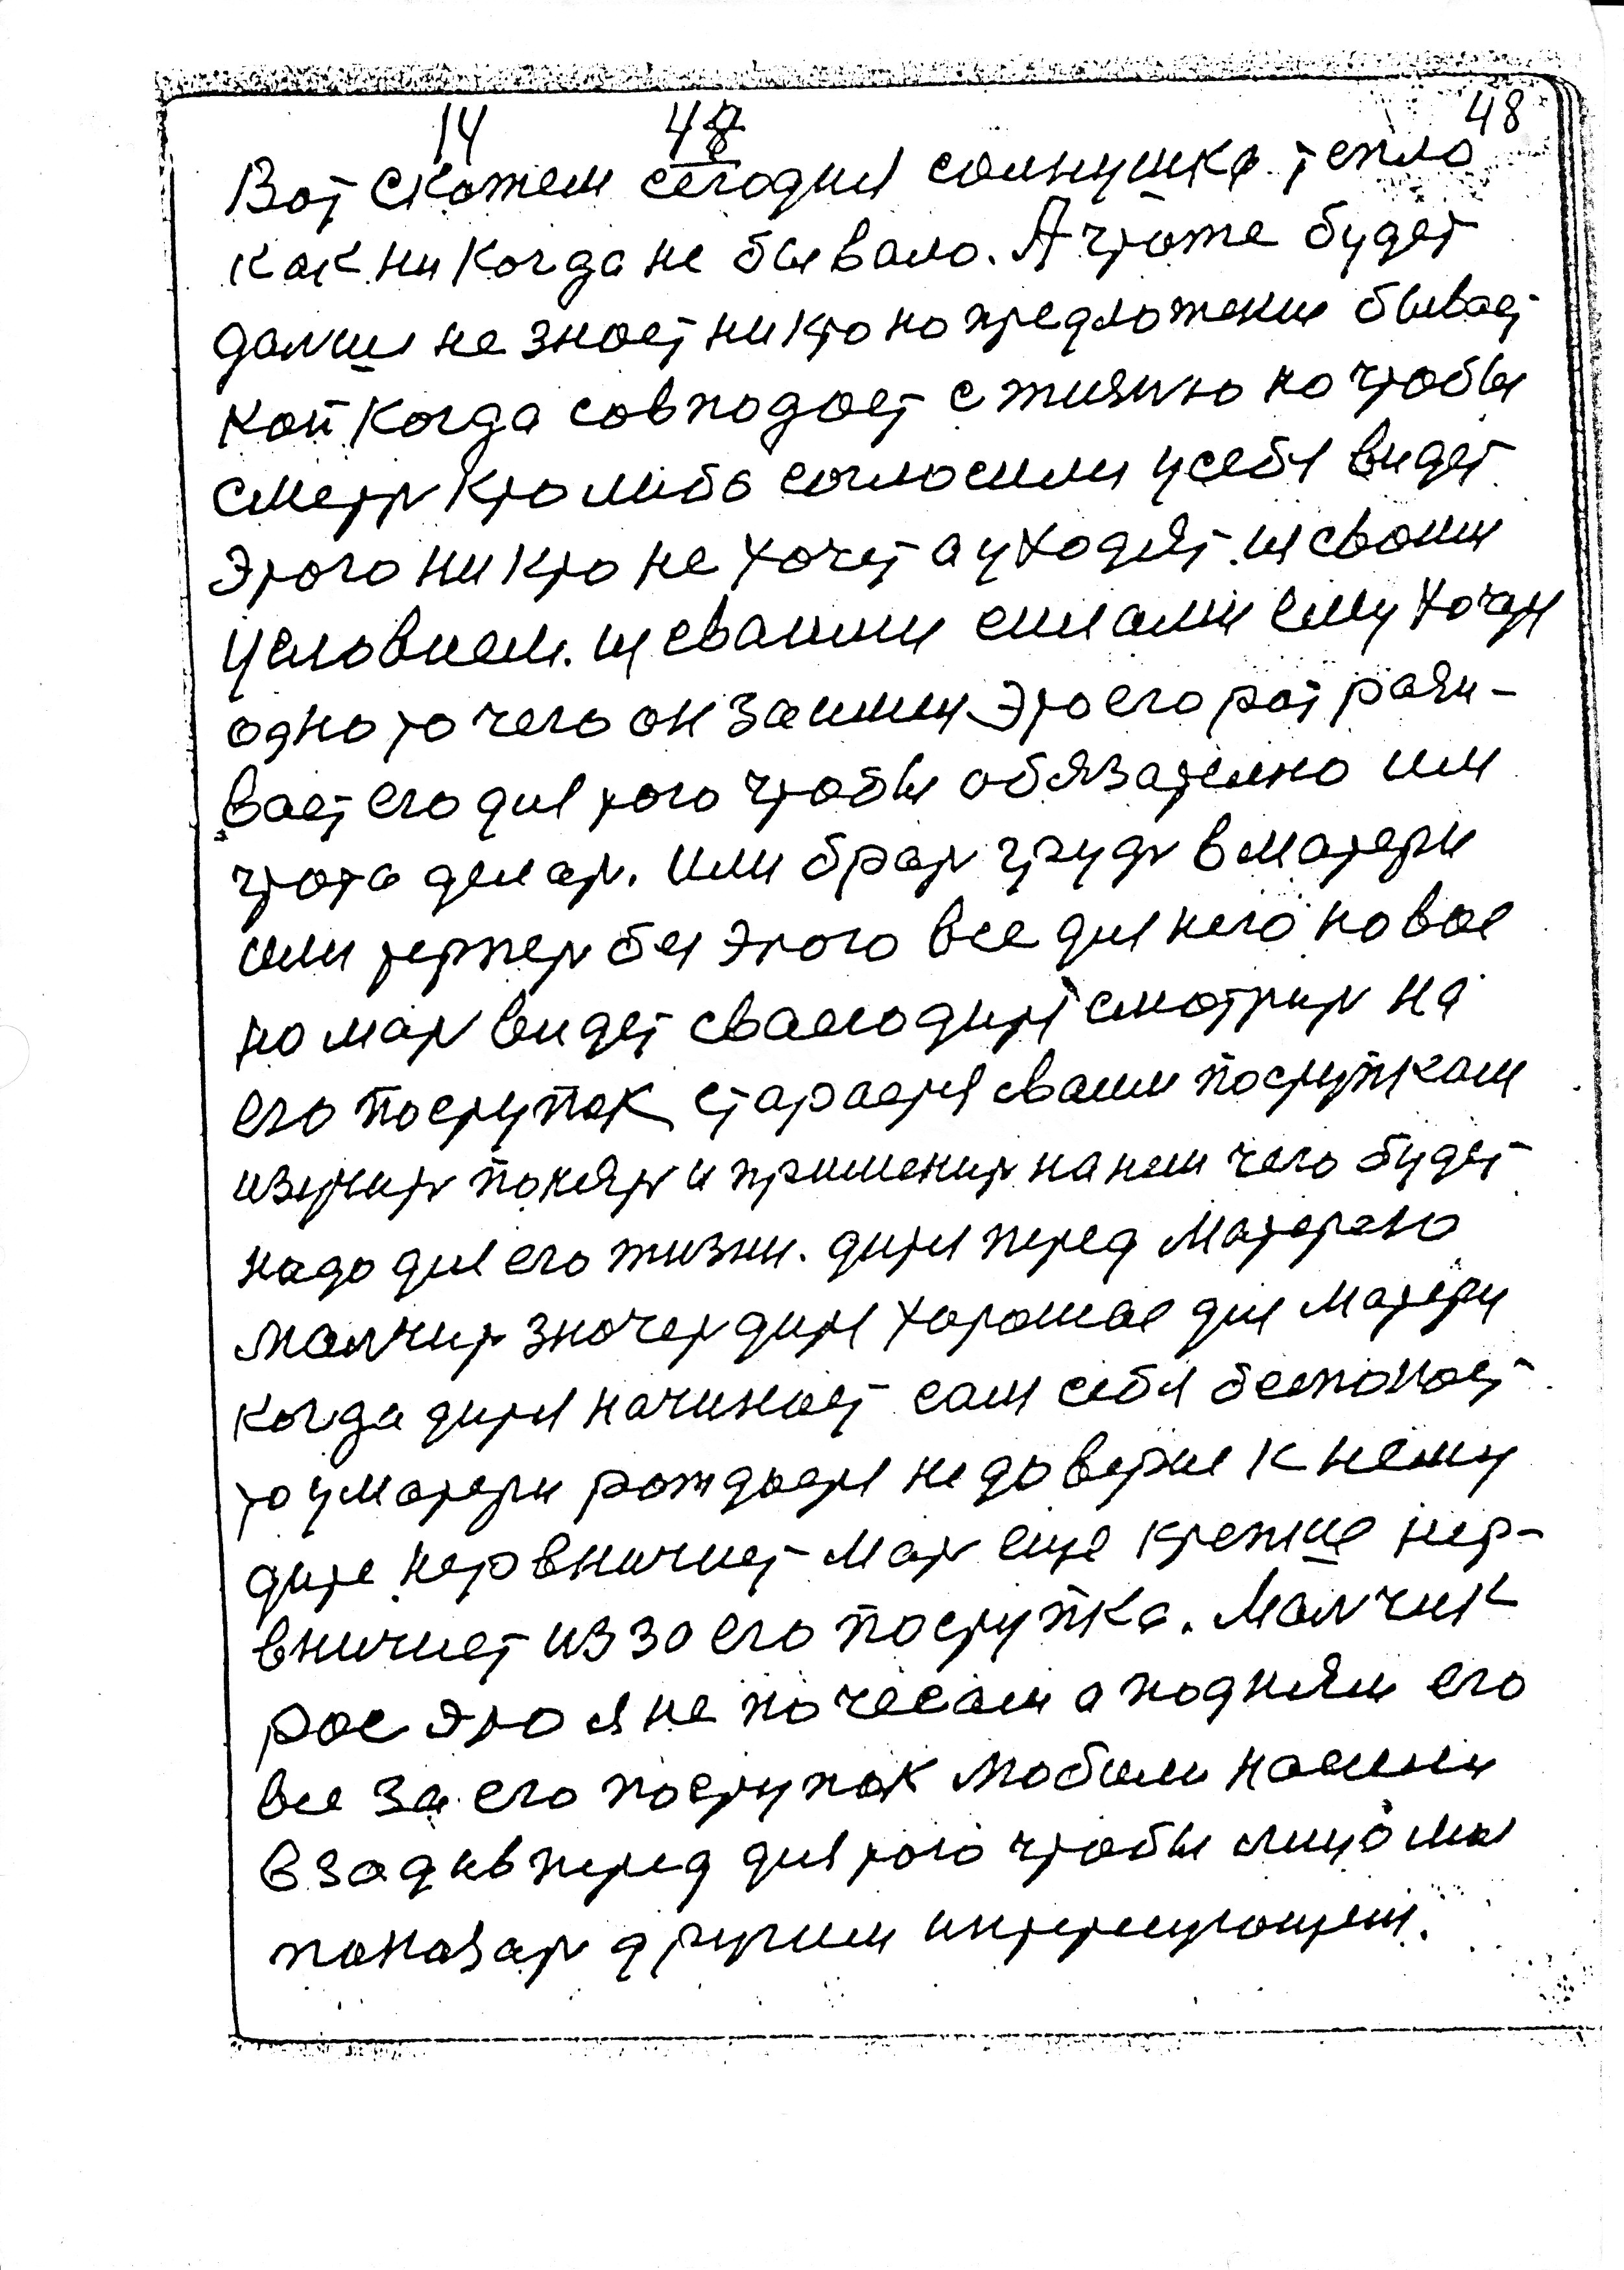 14 48 48
Вот скажем сегодня солнушко тепло
как ни когда не бывало. А чтоже будет
далши не знает ни кто но предложения бывает
кой когда совподает с жизнью но чтобы
смерть кто либо согласили у себя видет
этого ни кто не хочет а уходят из своим
условием. из сваими силами ему хочать
одно то чего он займи это его рот разы-
вает его для того чтобы обязателно им
чтото делать. или брать грудь в матери
или тержеть без этого все для него новое
но мать видет сваего дитя смотрить на
его поступок стараетя сваим поступкам
изучить понять и применить на нем чего будет
надо для его жизни. дитя перед матерею
малчить значеть дитя хорошае для матери
когда дитя начинает сам себя беспокает
то у матери рождаетя недоверие к нему
дите нервничает мать еще крепше нер-
вничает из за его поступка. Малчик
рос это я не почесам а подняли его
все за его поступок любили насили
в зад и в перед для того чтобы лицо мы
показать другим интерующем.